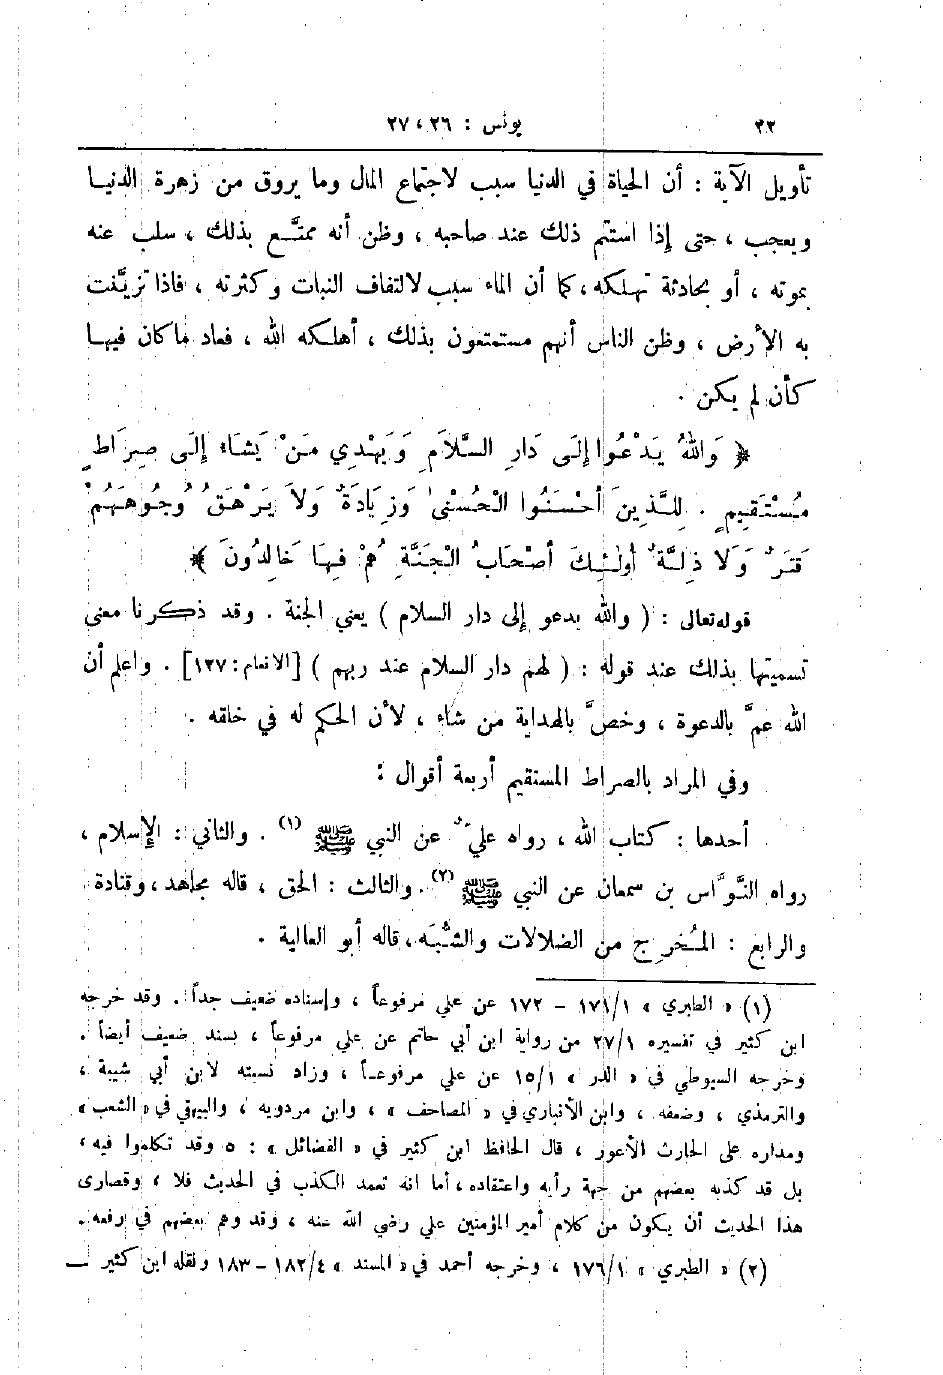 ٢٢ يونس : ٢٦ ، ٢٧
تأويل الآية : أن الحياة في الدنيا سبب لاجتماع المال وما يروق من زهرة الدنيا
ويعجب ، حتى إذا استتم ذلك عند صاحبه ، وظن أنه ممتَّع بذلك ، سلب عنه
بموته ، أو بحادثة تهلكه ، كما أن الماء سبب لالتفاف النبات وكثرته ، فاذا تزيَّنت
به الأرض ، وظن الناس أنهم مستمتعون بذلك ، أهلكه الله ، فعاد ما كان فيها
كأن لم يكن .
﴿ وَاللهُ يَدْعُوا إِلَى دَارِ السَّلاَمِ وَيَهْدِي مَنْ يَشَاءُ إِلَى صِرَاطٍ
مُسْتَقِيمٍ . لِلَّذِينَ أَحْسَنُوا الْحُسْنَىٰ وَزِيَادَةٌ وَلاَ يَرْهَقُ وُجُوهَهُمْ
قَتَرٌ وَلَا ذِلَّةٌ أُولَٰئِكَ أَصْحَابُ الْجَنَّةِ هُمْ فِيهَا خَالِدُونَ ﴾
قوله تعالى : ( والله يدعو إلى دار السلام ) يعني الجنة . وقد ذكرنا معنى
تسميتها بذلك عند قوله : ( لهم دار السلام عند ربهم ) [الانعام : ١٢٧] . واعلم أن
الله عمَّ بالدعوة ، وخصَّ بالهداية من شاء ، لأن الحكم له في خلقه .
وفي المراد بالصراط المستقيم أربعة أقوال :
أحدها : كتاب الله ، رواه عليٌّ عن النبي ﷺ (١) . والثاني : الإسلام ،
رواه النَّوَّاس بن سمعان عن النبي ﷺ (٢) . والثالث : الحق ، قاله مجاهد ، وقتادة
والرابع : المُخرِج من الضلالات والشُّبَه ، قاله أبو العالية .
(١) « الطبري » ١/ ١٧١ – ١٧٢ عن علي مرفوعاً ، وإسناده ضعيف جداً . وقد خرجه
ابن كثير في تفسيره ١/ ٢٧ من رواية ابن أبي حاتم عن علي مرفوعاً ، بسند ضعيف أيضاً .
وخرجه السيوطي في « الدر » ١/ ١٥ عن علي مرفوعاً ، وزاد نسبته لابن أبي شيبة ،
والترمذي ، وضعفه ، وابن الأنباري في « المصاحف » ، وابن مردويه ، والبيهقي في « الشعب »
ومداره على الحارث الأعور ، قال الحافظ ابن كثير في « الفضائل » : ٥ وقد تكلموا فيه ،
بل قد كذبه بعضهم من جهة رأيه واعتقاده ، أما انه تعمد الكذب في الحديث فلا ، وقصارى
هذا الحديث أن يكون من كلام أمير المؤمنين علي رضي الله عنه ، وقد وهم بعضهم في رفعه .
(٢) « الطبري » ١/ ١٧٦ ، وخرجه أحمد في « المسند » ٤/ ١٨٢ – ١٨٣ ونقله ابن كثير —